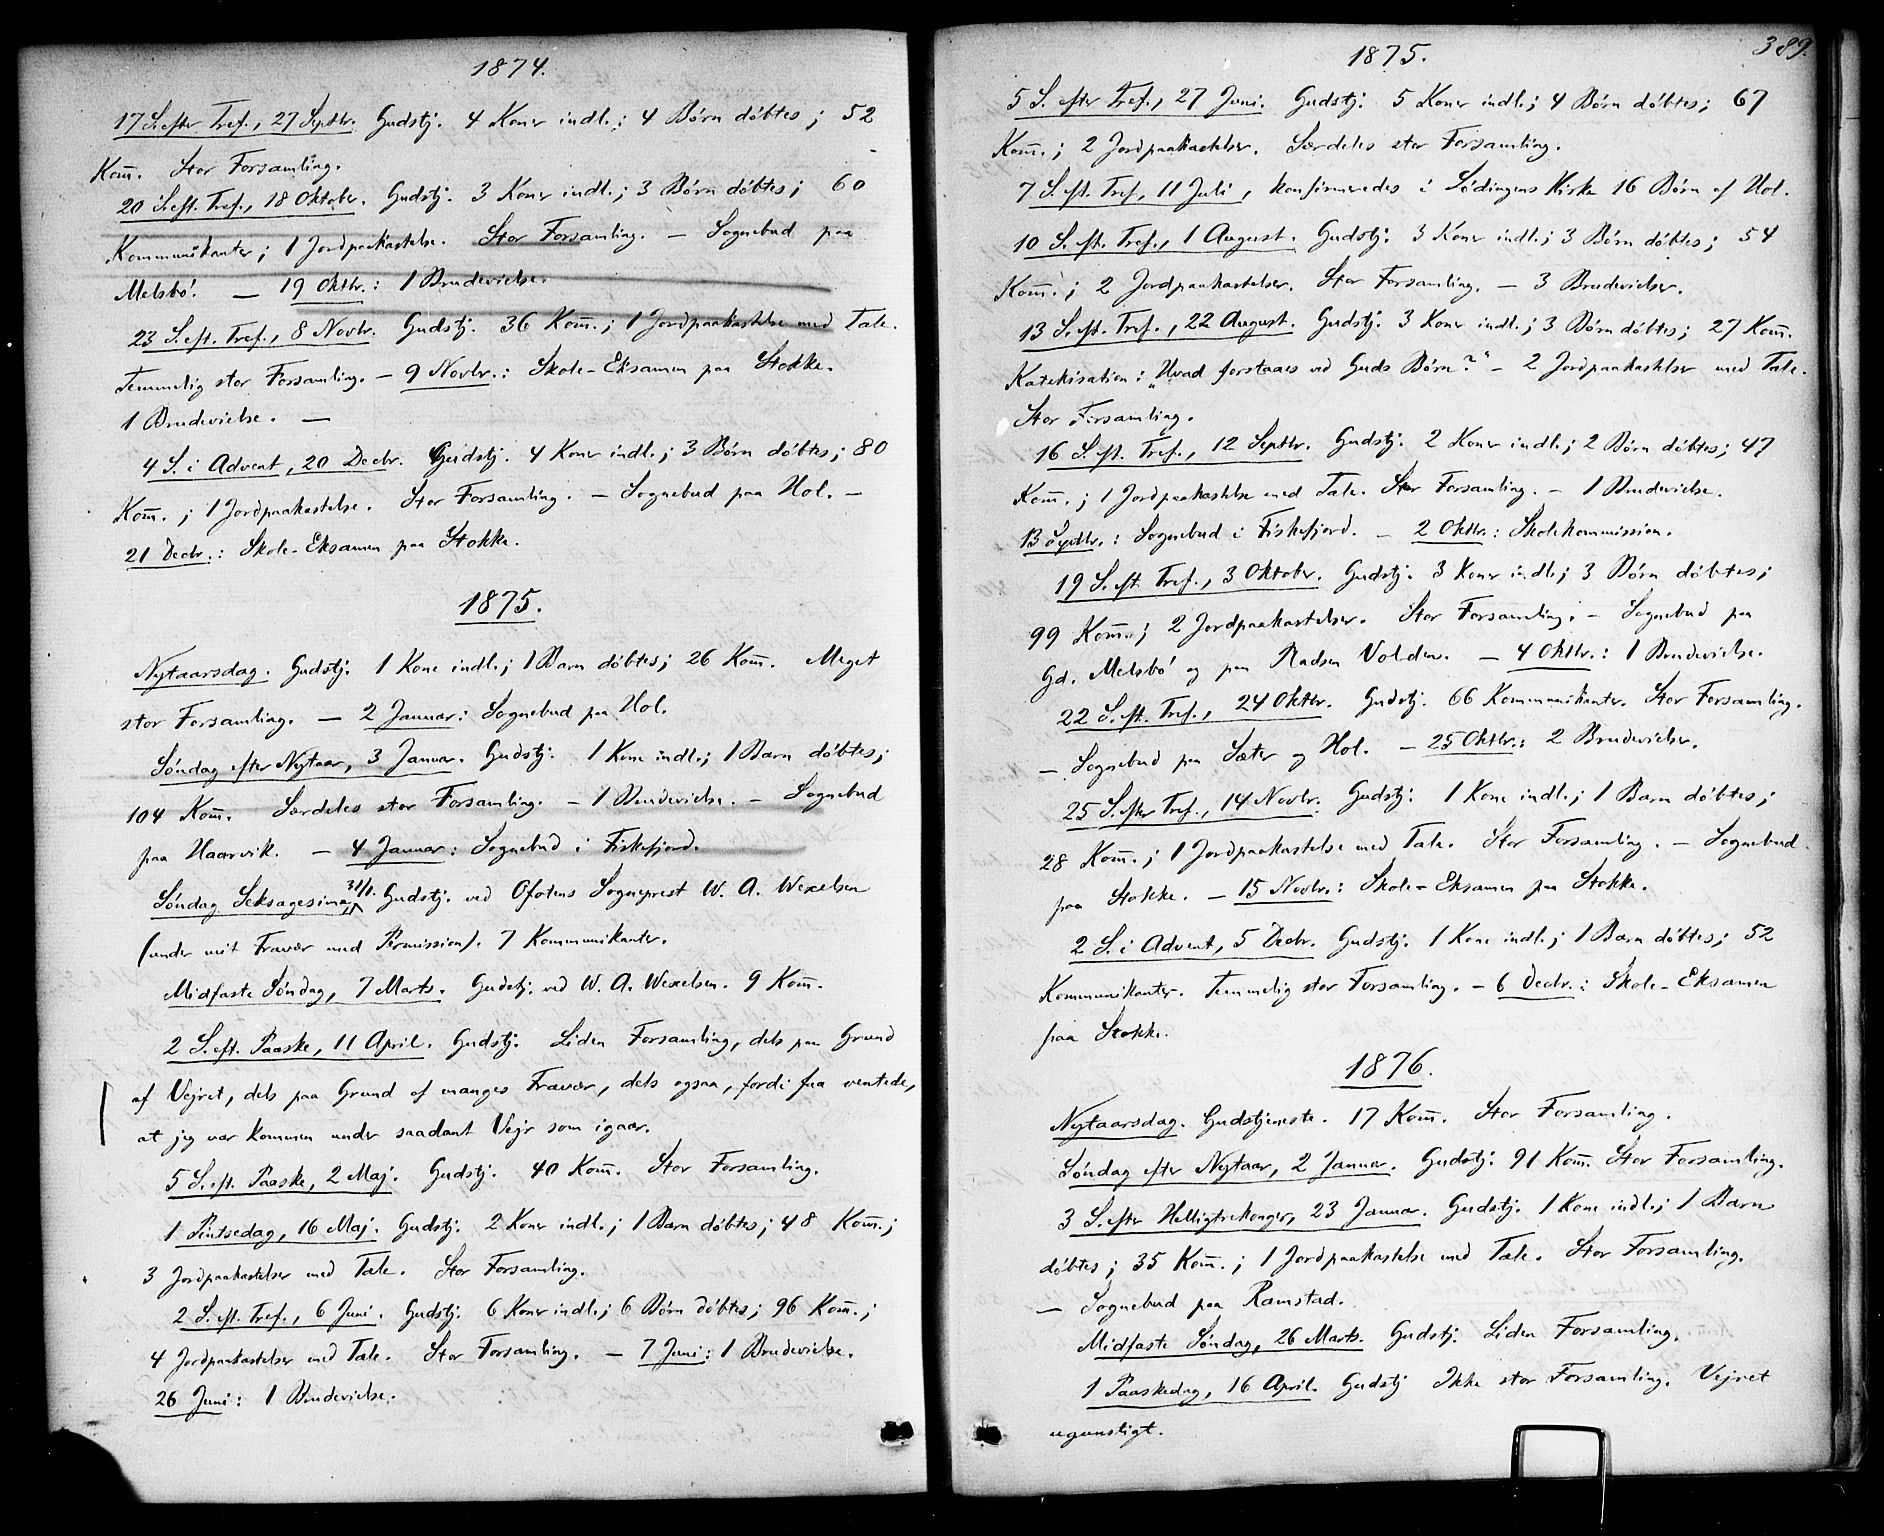 1874.
17 S. efter Tref., 27 Septbr. Gudstj. 4 Koner indl.; 4 Børn døbtes; 52
Kom̅. Stor Forsamling.
20 S. eft. Tref., 18 Oktober. Gudstj. 3 Koner indl.; 3 Børn døbtes; 60
Kommunikanter; 1 Jordpaakastelse. Stor Forsamling. — Sognebud paa
Melsbø. — 19 Oktbr.: 1 Brudevielse.
23 S. eft. Tref., 8 Novbr. Gudstj. 36 Kom̅.; 1 Jordpaakastelse med Tale.
Temmelig stor Forsamling. — 9 Novbr.: Skole-Eksamen paa Stokke.
1 Brudevielse. —
4 S. i Advent, 20 Decbr. Gudstj. 4 Koner indl.; 3 Børn døbtes; 80
Kom̅.; 1 Jordpaakastelse. Stor Forsamling. — Sognebud paa Hol. —
21 Decbr.: Skole-Eksamen paa Stokke.
1875.
Nytaarsdag. Gudstj. 1 Kone indl.; 1 Barn døbtes; 26 Kom̅. Meget
stor Forsamling. — 2 Januar: Sognebud paa Hol.
Søndag efter Nytaar, 3 Januar. Gudstj. 1 Kone indl.; 1 Barn døbtes;
104 Kom̅. Særdeles stor Forsamling. — 1 Brudevielse. — Sognebud
paa Haarvik. — 4 Januar: Sognebud i Fiskefjord.
Søndag Seksagesima, 31/1. Gudstj. ved Ofotens Sogneprest W. A. Wexelsen
(under mit Fravær med Permission). 7 Kommunikanter.
Midfaste Søndag, 7 Marts. Gudstj. ved W. A. Wexelsen. 9 Kom̅.
2 S. eft. Paaske, 11 April. Gudstj. Liden Forsamling, dels paa Grund
af Vejret, dels paa Grund af manges Fravær, dels ogsaa, fordi faa ventede,
at jeg var kommen under saadant Vejr som igaar.
5 S. eft. Paaske, 2 Maj. Gudstj. 40 Kom̅. Stor Forsamling.
1 Pintsedag, 16 Maj. Gudstj. 2 Koner indl.; 1 Barn døbtes; 48 Kom̅.;
3 Jordpaakastelser med Tale. Stor Forsamling.
2 S. eft. Tref., 6 Juni. Gudstj. 6 Koner indl.; 6 Børn døbtes; 96 Kom̅.;
4 Jordpaakastelser med Tale. Stor Forsamling. — 7 Juni: 1 Brudevielse.
26 Juni: 1 Brudevielse.
389.
1875.
5 S. efter Tref., 27 Juni. Gudstj. 5 Koner indl.; 4 Børn døbtes; 67
Kom̅.; 2 Jordpaakastelser. Særdeles stor Forsamling.
7 S. eft. Tref., 11 Juli, konfirmeredes i Lødingens Kirke 16 Børn af Hol.
10 S. eft. Tref., 1 August. Gudstj. 3 Koner indl.; 3 Børn døbtes; 54
Kom̅.; 2 Jordpaakastelser. Stor Forsamling. — 3 Brudevielser.
13 S. eft. Tref., 22 August. Gudstj. 3 Koner indl.; 3 Børn døbtes; 27 Kom̅.
Katekisation: „Hvad forstaaes ved Guds Børn?“ — 2 Jordpaakastelser med Tale.
Stor Forsamling.
16 S. eft. Tref., 12 Septbr. Gudstj. 2 Koner indl.; 2 Børn døbtes; 47
Kom̅.; 1 Jordpaakastelse med Tale. Stor Forsamling. — 1 Brudevielse.
13 Septbr.: Sognebud i Fiskefjord. — 2 Oktbr.: Skolekommission.
19 S. eft. Tref., 3 Oktober. Gudstj. 3 Koner indl.; 3 Børn døbtes;
99 Kom̅.; 2 Jordpaakastelser. Stor Forsamling. — Sognebud paa
Gd. Melsbø og paa Pladsen Volden. — 4 Oktbr.: 1 Brudevielse.
22 S. eft. Tref., 24 Oktbr. Gudstj. 66 Kommunikanter. Stor Forsamling.
— Sognebud paa Sæter og Hol. — 25 Oktbr.: 2 Brudevielser.
25 S. efter Tref., 14 Novbr. Gudstj. 1 Kone indl.; 1 Barn døbtes;
28 Kom̅.; 1 Jordpaakastelse med Tale. Stor Forsamling. — Sognebud
paa Stokke. — 15 Novbr.: Skole-Eksamen paa Stokke.
2 S. i Advent, 5 Decbr. Gudstj. 1 Kone indl.; 1 Barn døbtes; 52
Kommunikanter. Temmelig stor Forsamling. — 6 Decbr.: Skole-Eksamen
paa Stokke.
1876.
Nytaarsdag. Gudstjeneste. 17 Kom̅. Stor Forsamling.
Søndag efter Nytaar, 2 Januar. Gudstj. 91 Kom̅. Stor Forsamling.
3 S. efter Helligtrekonger, 23 Januar. Gudstj. 1 Kone indl.; 1 Barn
døbtes; 35 Kom̅.; 1 Jordpaakastelse med Tale. Stor Forsamling.
— Sognebud paa Ramstad.
Midfaste Søndag, 26 Marts. Gudstj. Liden Forsamling.
1 Paaskedag, 16 April. Gudstj Ikke stor Forsamling. Vejret
ugunstigt.